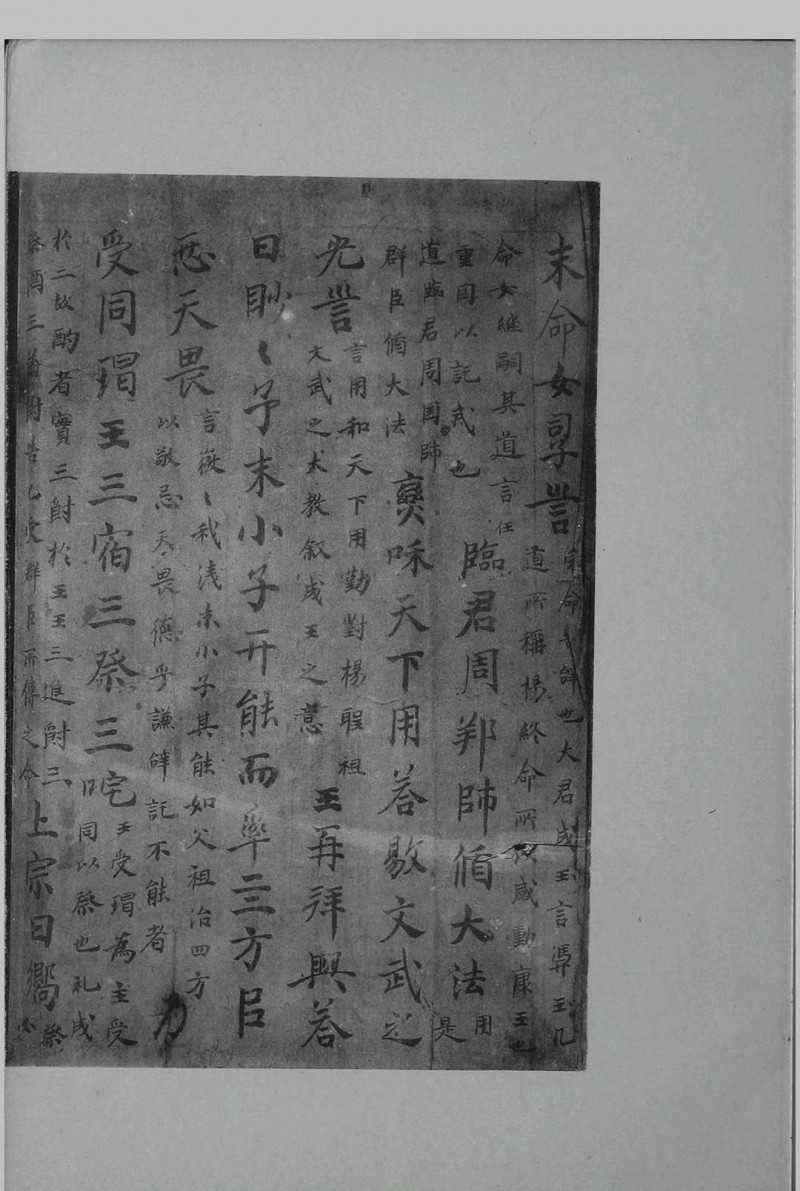 末命女孠訾
冊命之辝也大君成王言馮玉几
道所稱楊終命所以感動康王也
命女継嗣其道言任
重因以託戒也
臨君周邦帥脩大法
用
是
道臨君周国帥
群臣脩大法
爕咊天下用荅敭文武之
光訾
言用和天下用勤對楊聖祖
文武之大教叙成王之意
王再拜興荅
曰眇〻予末小子亓能而率亖方㠯
忌天畏
言薇〻我浅末小子其能如父祖治四方
以敬忌天畏德乎謙辝託不能者
乃
受同瑁王三宿三祭三咤
王受瑁為主受
同以祭也礼成
於三故酌者實三爵於王王三進爵三
祭酉三奠爵告已受群臣所傳之命
上宗曰嚮
祭